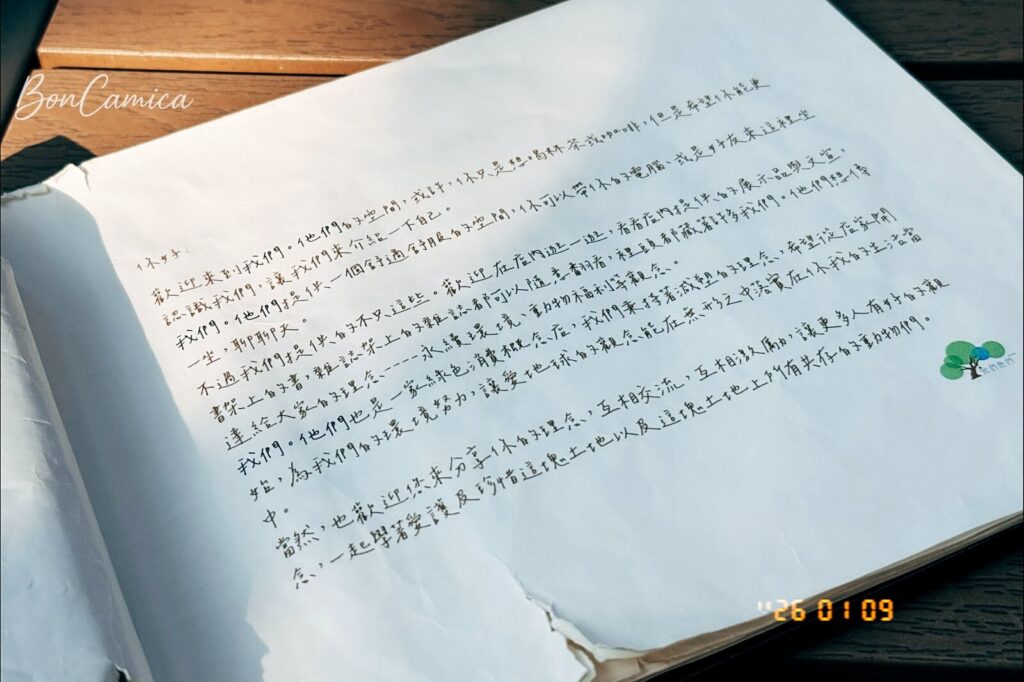 BonCamica
你好:
歡迎來到我們。他們的空間,或許,你只是想喝杯茶或咖啡,但是希望你能更
認識我們,讓我們來介紹一下自己。
我們。他們提供一個舒適舒服的空間,你可以帶你的電腦、或是好友來這裡坐
一坐,聊聊天。
不過我們提供的不只這些。歡迎在店內逛一逛,看看店內提供的展示品與文宣,
書架上的書,雜誌架上的雜誌都可以隨意翻看,裡頭都藏著許多我們。他們想傳
達給大家的理念----永續環境、動物福利等觀念。
我們。他們也是一家綠色消費概念店,我們秉持著減塑的理念,希望從在家開
始,為我們的環境努力,讓愛地球的觀念能在無形之中落實在你我的生活當
中。
當然,也歡迎您來分享你的理念,互相交流,互相激勵,讓更多人有好的觀
念,一起學著愛護及珍惜這塊土地以及這塊土地上所有共存的動物們。
'26 01 09